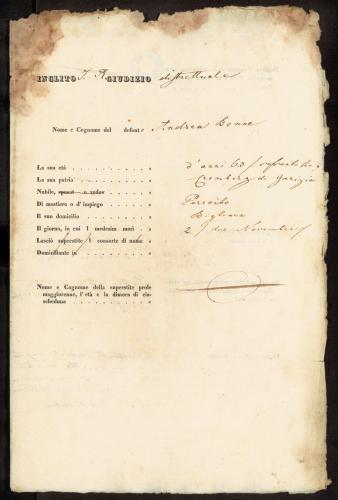 INCLITO I. R. GIUDIZIO distrettuale
Nome e Cognome del defonto Andrea Bonne
La sua età . . . . . . . . . . . » d'anni 63
La sua patria . . . . . . . . . . »
Nubile, sposato o vedovo . . . . . . »
Di mestiere o d'impiego . . . . . . » Parroco
Il suo domicilio . . . . . . . . . » Bigliana
Il giorno, in cui 'l medesimo morì . . . » 2/due Novembre
Lasciò superstite 'l consorte di nome »
Domiciliante in . . . . . . . . . »
Nome e Cognome della superstite prole
maggiorenne, l'età e la dimora di cia-
scheduno . . . . . . . . . . . »